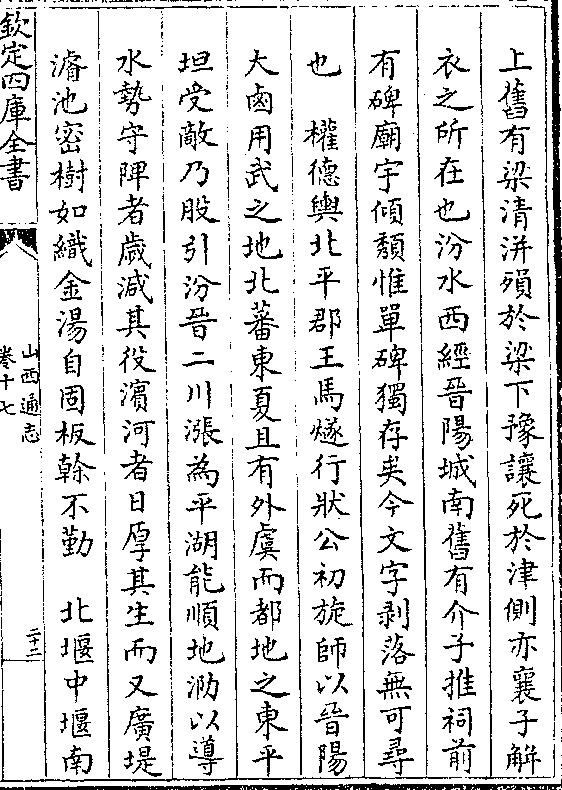 上舊有梁清洴殞於梁下豫讓死於津側亦襄子解
衣之所在也汾水西經晉陽城南舊有介子推祠前
有碑廟宇傾頽惟單碑獨存矣今文字剥落無可尋
也　權德輿北平郡王馬燧行狀公初旋師以晉陽
大鹵用武之地北蕃東夏且有外虞而都地之東平
坦受敵乃股引汾晉二川漲為平湖能順地泐以導
水勢守陴者歲減其役濵河者日厚其生而又廣堤
濬池密樹如織金湯自固板榦不勤　北堰中堰南
欽定四庫全書
山西通志
卷十七
二十二